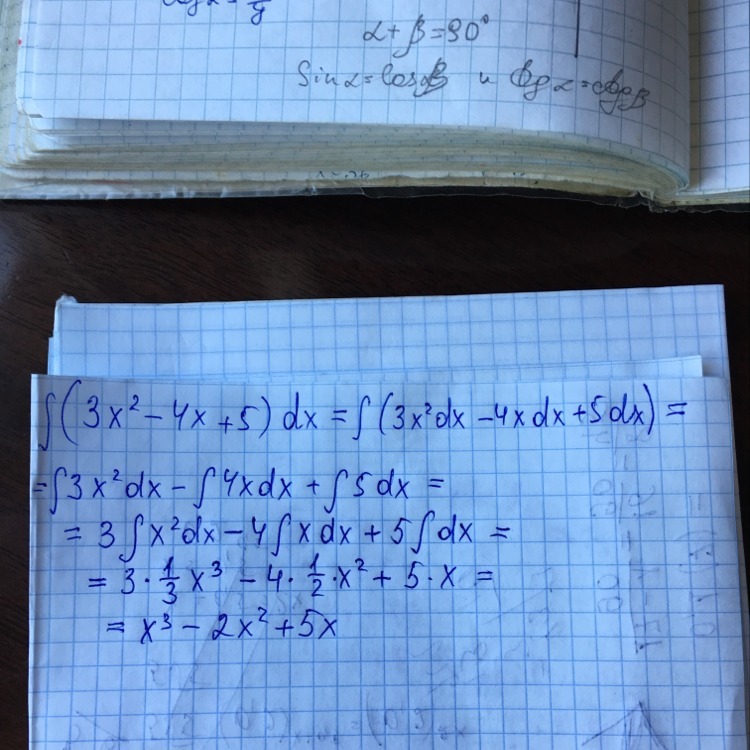 α + β = 90°
Sin α = cos β и tg α = ctg β
∫(3x² − 4x + 5) dx = ∫(3x²dx − 4x dx + 5 dx) =
= ∫3x²dx − ∫4x dx + ∫5 dx =
= 3∫x²dx − 4∫x dx + 5∫dx =
= 3 · 1/3 x³ − 4 · 1/2 · x² + 5 · x =
= x³ − 2x² + 5x